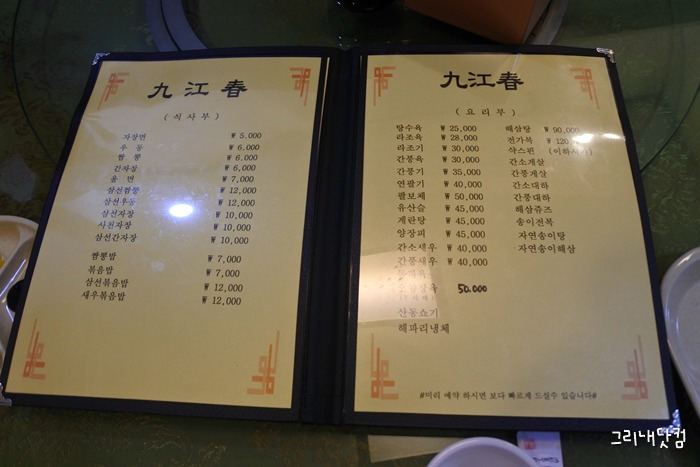 九江春
(식사부)
자장면 ₩ 5,000
우동 ₩ 6,000
짬뽕 ₩ 6,000
간자장 ₩ 6,000
울면 ₩ 7,000
삼선짬뽕 ₩ 12,000
삼선우동 ₩ 12,000
삼선자장 ₩ 10,000
사천자장 ₩ 10,000
삼선간자장 ₩ 10,000
짬뽕밥 ₩ 7,000
볶음밥 ₩ 7,000
삼선볶음밥 ₩ 12,000
새우볶음밥 ₩ 12,000
九江春
(요리부)
탕수육 ₩ 25,000
라조육 ₩ 28,000
라조기 ₩ 30,000
깐풍육 ₩ 30,000
깐풍기 ₩ 35,000
연팔기 ₩ 40,000
팔보채 ₩ 50,000
유산슬 ₩ 45,000
계란탕 ₩ 45,000
양장피 ₩ 45,000
간소새우 ₩ 40,000
간풍새우 ₩ 40,000
50.000
산동쇼기
해파리냉채
해삼탕 ₩ 90,000
전가복 ₩ 120
샥스핀 (이하시가)
간소게살
간풍게살
간소대하
간풍대하
해삼쥬즈
송이전복
자연송이탕
자연송이해삼
#미리 예약 하시면 보다 빠르게 드실수 있습니다#
그리내닷컴